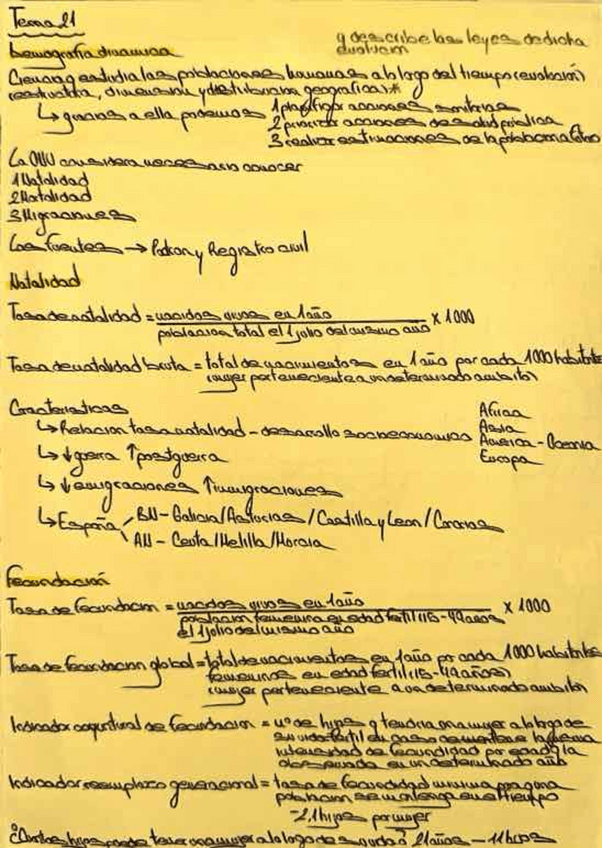 Tema 21
Demografía dinamica
y describe las leyes q dicha
evolucion
Ciencia q estudia las poblaciones humanas a lo largo del tiempo (evolución)
(estructura, dimension y distribucion geografica)*
↳ gracias a ella podemos 1 planificar acciones sanitarias
2 priorizar acciones de salud publica
3 realizar estimaciones de la poblacion a futuro
La ONU considera necesario conocer
1 Natalidad
2 Mortalidad
3 Migraciones
Las fuentes → Padron y Registro civil
Natalidad
Tasa de natalidad = nacidos vivos en 1 año x 1000
poblacion total el 1 julio del mismo año
Tasa de natalidad bruta = total de nacimientos en 1 año por cada 1000 habitantes
(mujer perteneciente a un determinado ambito)
Caracteristicas
↳ Relacion tasa natalidad - desarrollo socioeconomico
Africa
Asia
America - Oceania
Europa
↳ ↓ guerra ↑ postguerra
↳ ↓ emigraciones ↑ inmigraciones
↳ España
BN - Galicia/Asturias/Castilla y Leon/Canarias
AN - Ceuta/Melilla/Murcia
Fecundación
Tasa de fecundacion = nacidos vivos en 1 año x 1000
poblacion femenina en edad fertil (15-49 años)
el 1 julio del mismo año
Tasa de fecundacion global = total de nacimientos en 1 año por cada 1000 habitantes
femeninos en edad fertil (15-49 años)
(mujer perteneciente a un determinado ambito)
Indicador coyuntural de fecundacion = nº de hijos q tendria una mujer a lo largo de
su vida fertil en caso de mantener la misma
intensidad de fecundidad por edad q la
observada en un determinado año
Indicador reemplazo generacional = tasa de fecundidad minima para q una
poblacion se mantenga en el tiempo
- 2,1 hijos por mujer
¿Cuantos hijos puede tener una mujer a lo largo de su vida? 21 años - 11 hijos